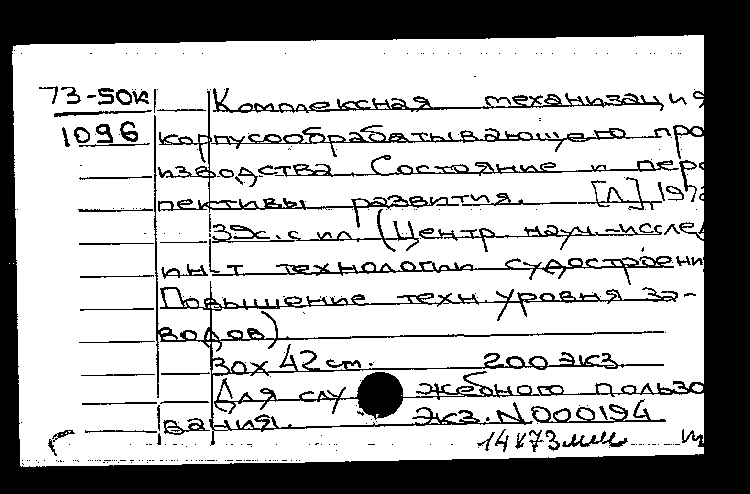 73-50к Комплексная механизация
1096 корпусообрабатывающего про
изводства. Состояние и перс
пективы развития. [Л], 197
39с. с ил. (Центр. науч.-исслед
ин-т технологии судостроени
Повышение техн. уровня за-
водов).
30х42 см. 200 экз.
Для служебного пользо
вания. Экз. N000194